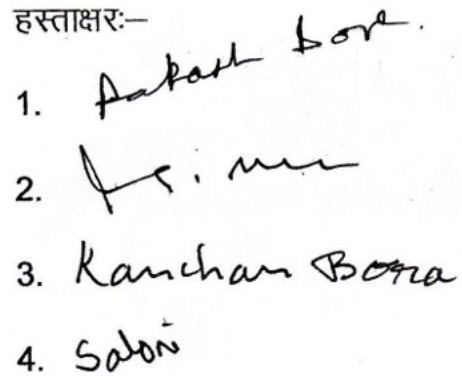 हस्ताक्षरः–
1. Aakash
2.
3. Kanchan Bora
4. Saloni